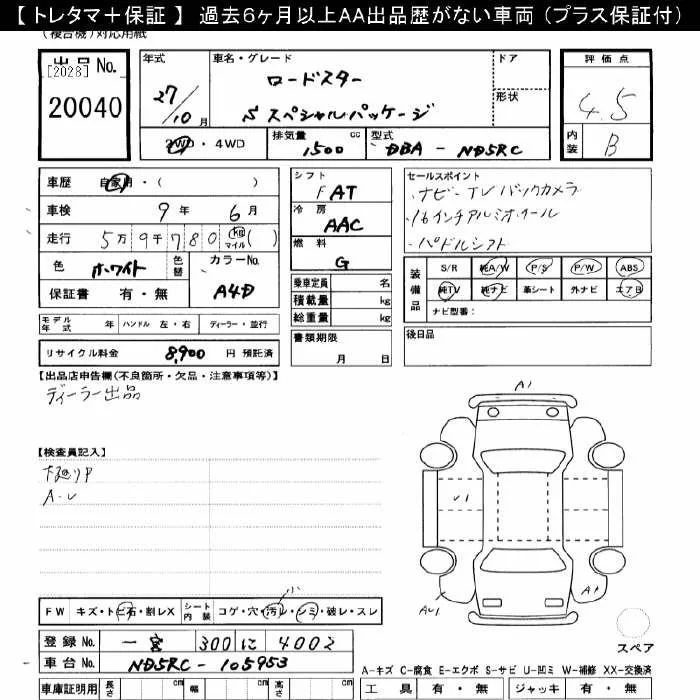 【 トレタマ＋保証 】 過去6ヶ月以上AA出品歴がない車両（プラス保証付）
(複合機) 対応用紙
出品 No. [2028]
20040
年式
27/10 月
車名・グレード
ロードスター
S スペシャルパッケージ
ドア
形状
2WD ・ 4WD
排気量 1500 cc
型式 DBA - ND5RC
評価点
4.5
内装 B
車歴 自家用・( )
車検 9 年 6 月
走行 5万 9千 7 8 0 km マイル ( )
色 ホワイト 色替
カラーNo. A4D
保証書 有・無
シフト F AT
冷房 AAC
燃料 G
乗車定員 名
積載量 kg
総重量 kg
書類期限
月 日
セールスポイント
・ナビ・TV バックカメラ
・16インチアルミホイール
・パドルシフト
装備品
S/R 純A/W P/S P/W ABS
純TV 純ナビ 革シート 外ナビ エアB
ナビ型番：
後日品
モデル年式 年 ハンドル 左・右 ディーラー・並行
リサイクル料金 8,900 円 預託済
【出品店申告欄(不良箇所・欠品・注意事項等)】
ディーラー出品
【検査員記入】
下廻りP
A-U
A1
U1
AU1
A1
スペア
FW キズ・トビ石・割レX シート内装 コゲ・穴・汚レ・シミ・破レ・スレ
小
登録 No. 一宮 300 に 4002
車台 No. ND5RC - 105953
A-キズ C-腐食 E-エクボ S-サビ U-凹ミ W-補修 XX-交換済
車庫証明用 長さ cm 幅 cm 高さ cm
工具 有・無 ジャッキ 有・無